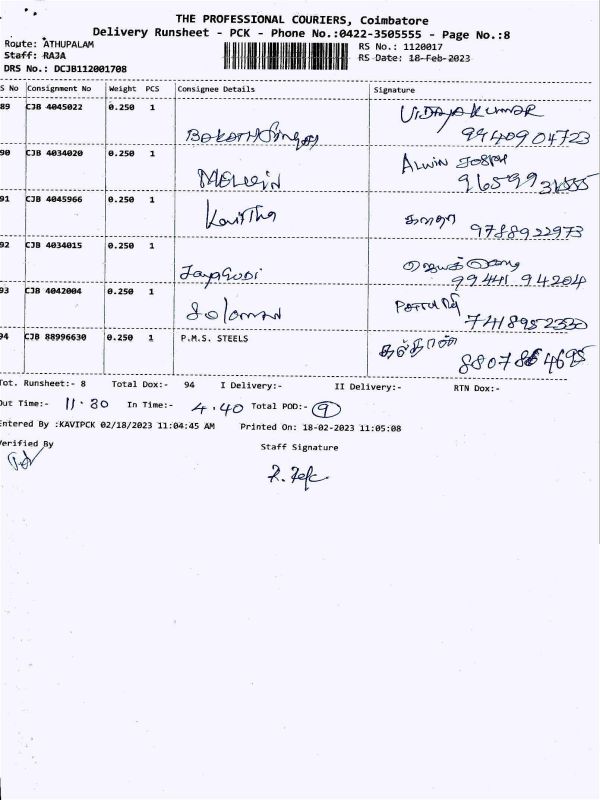 THE PROFESSIONAL COURIERS, Coimbatore
Delivery Runsheet - PCK - Phone No.:0422-3505555 - Page No.:8
Route: ATHUPALAM
RS No.: 1120017
Staff: RAJA
RS Date: 18-Feb-2023
DRS No.: DCJB112001708
S No Consignment No Weight PCS Consignee Details Signature
89 CJB 4045022 0.250 1 VIDAYAKUMAR
9940904723
90 CJB 4034020 0.250 1 Alwin
Melwin 9659931555
91 CJB 4045966 0.250 1 Kavitha
9788922973
92 CJB 4034015 0.250 1
Jayagobi 99441 94204
93 CJB 4042004 0.250 1
Soloman 7418952330
94 CJB 88996630 0.250 1 P.M.S. STEELS
Tot. Runsheet:- 8 Total Dox:- 94 I Delivery:- II Delivery:- RTN Dox:-
Out Time:- 11.30 In Time:- 4.40 Total POD:- 9
Entered By :KAVIPCK 02/18/2023 11:04:45 AM Printed On: 18-02-2023 11:05:08
Verified By Staff Signature